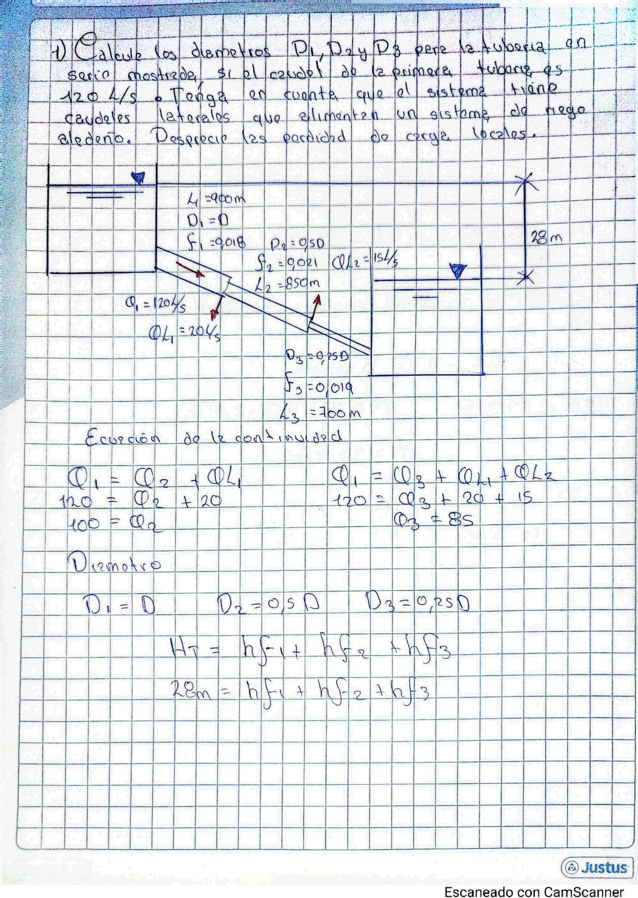 1) Calcule los diametros D1, D2 y D3 para la tuberia en
serie mostrada, si el caudal de la primera tuberia es
120 L/s. Tenga en cuenta que el sistema tiene
caudales laterales que alimentan un sistema de riego
aledaño. Desprecie las perdidad de carga locales.
L1 = 900m
D1 = D
f1 = 0,018
D2 = 0,5D
f2 = 0,021
L2 = 850m
QL2 = 15L/s
28m
Q1 = 120L/s
QL1 = 20L/s
D3 = 0,25D
f3 = 0,019
L3 = 700m
Ecuación de la continuidad
Q1 = Q2 + QL1
120 = Q2 + 20
100 = Q2
Q1 = Q3 + QL1 + QL2
120 = Q3 + 20 + 15
Q3 = 85
Diametro
D1 = D D2 = 0,5D D3 = 0,25D
HT = hf1 + hf2 + hf3
28m = hf1 + hf2 + hf3
Justus
Escaneado con CamScanner